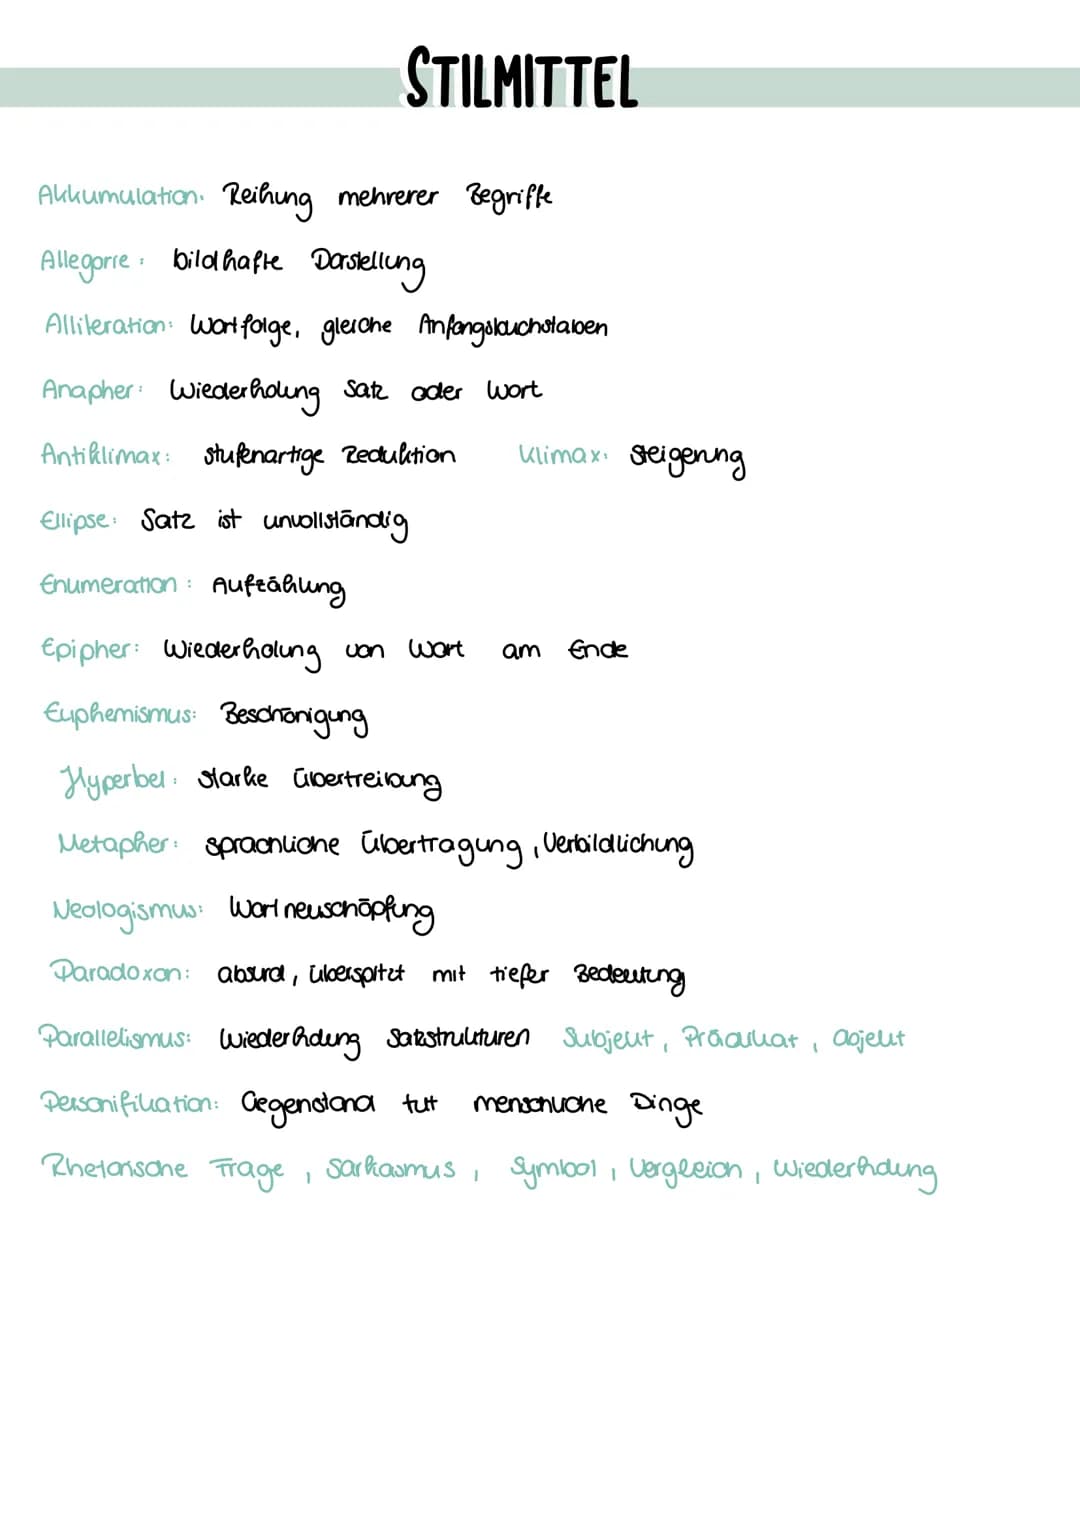 STILMITTEL
Akkumulation: Reihung mehrerer Begriffe
Allegorie: bildhafte Darstellung
Alliteration: Wortfolge, gleiche Anfangsbuchstaben
Anapher: Wiederholung Satz oder Wort
Antiklimax: stufenartige Reduktion Klimax: Steigerung
Ellipse: Satz ist unvollständig
Enumeration: Aufzählung
Epipher: Wiederholung von Wort am Ende
Euphemismus: Beschönigung
Hyperbel: starke Übertreibung
Metapher: sprachliche Übertragung, Verbildlichung
Neologismus: Wortneuschöpfung
Paradoxon: absurd, überspitzt mit tiefer Bedeutung
Parallelismus: Wiederholung Satzstrukturen Subjekt, Prädikat, Objekt
Personifikation: Gegenstand tut menschliche Dinge
Rhetorische Frage, Sarkasmus, Symbol, Vergleich, Wiederholung